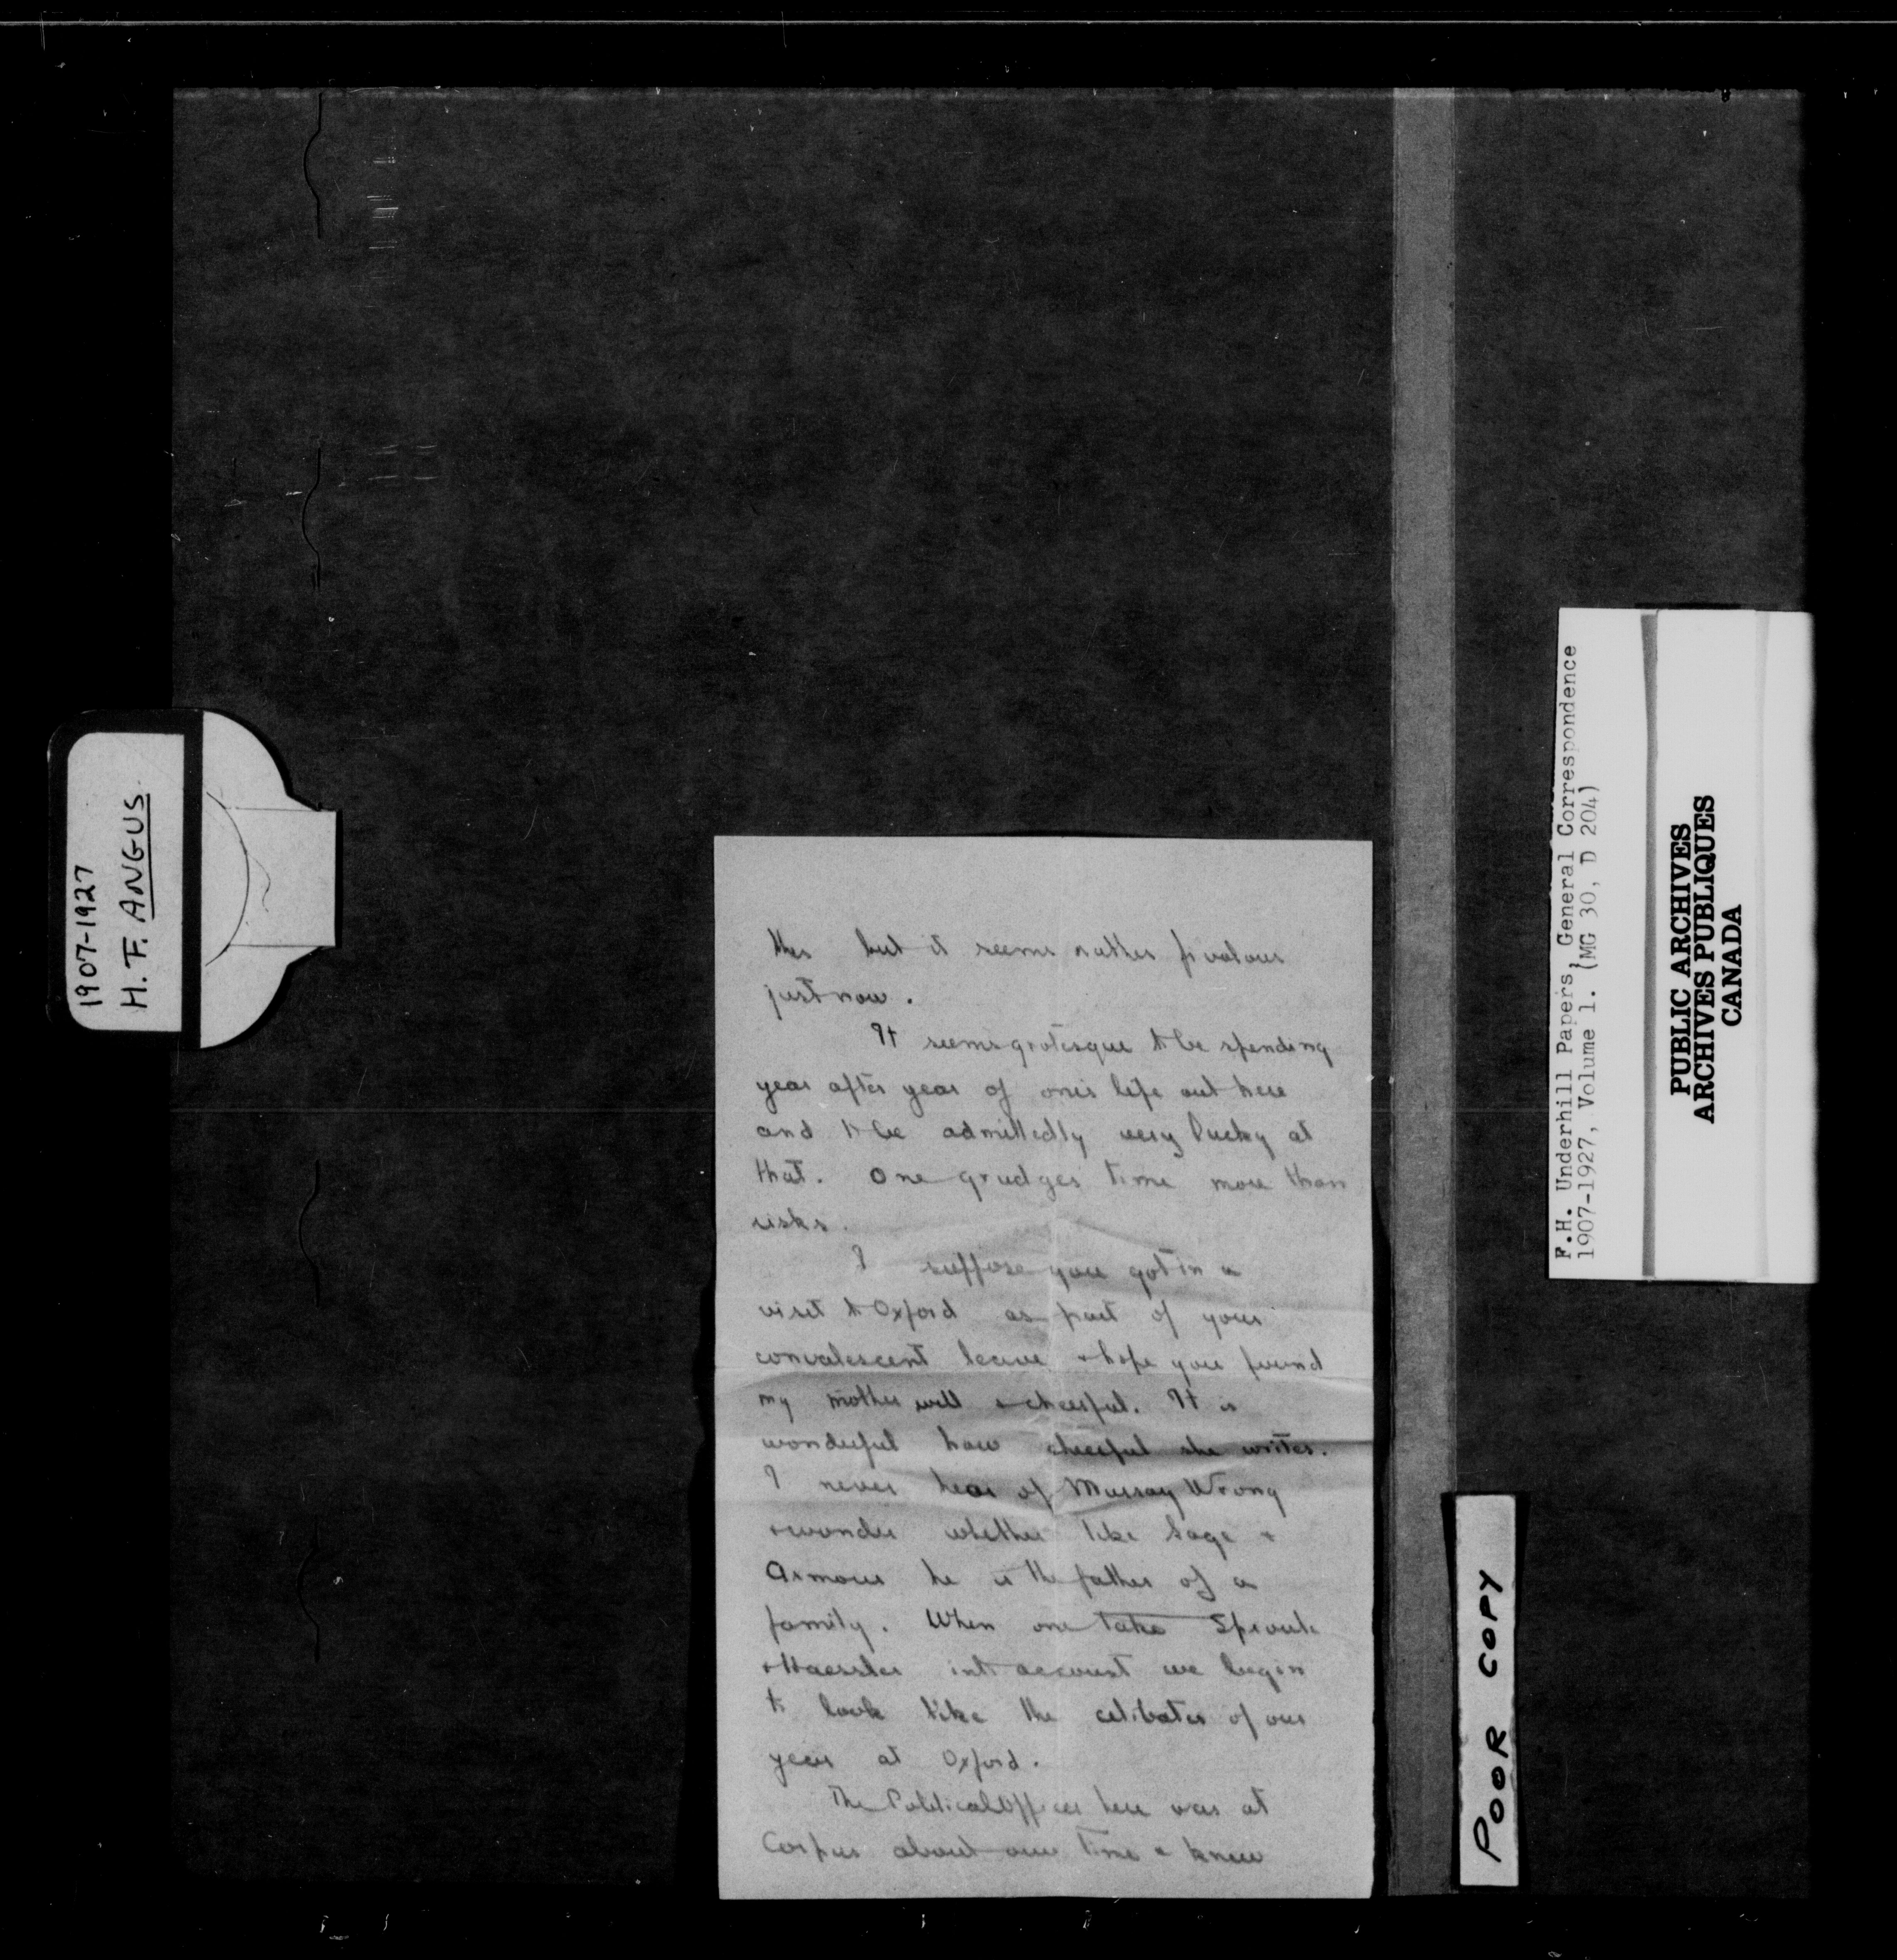 1907-1927
H. F. ANGUS
this but it seems rather frivolous
just now.
It seems grotesque to be spending
year after year of one's life out here
and to be admittedly very lucky at
that. One grudges time more than
risks.
I suppose you got in a
visit to Oxford as part of your
convalescent leave & hope you found
my mother well & cheerful. It is
wonderful how cheerful she writes.
I never hear of Murray Wrong
& wonder whether like Sage &
Armour he is the father of a
family. When one takes Sproule
& Haessler into account we begin
to look like the celibates of our
year at Oxford.
The Political Officer here was at
Corpus about our time & knew
F.H. Underhill Papers, General Correspondence
1907-1927, Volume 1. (MG 30, D 204)
PUBLIC ARCHIVES
ARCHIVES PUBLIQUES
CANADA
POOR COPY